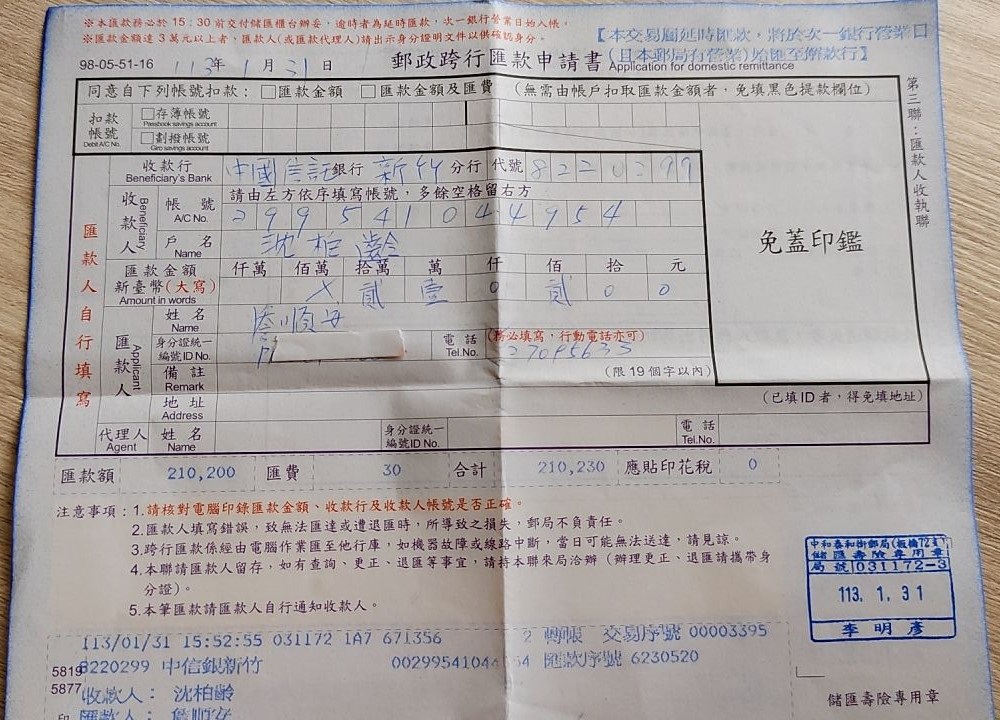 ※本匯款務必於15:30前交付儲匯櫃台辦妥，逾時者為延時匯款，次一銀行營業日始入帳。
※匯款金額達3萬元以上者，匯款人(或匯款代理人)請出示身分證明文件以供確認身分。
【本交易屬延時匯款，將於次一銀行營業日
(且本郵局有營業)始匯至解款行】
98-05-51-16 113年 1 月 31 日 郵政跨行匯款申請書 Application for domestic remittance
同意自下列帳號扣款：□匯款金額 □匯款金額及匯費 (無需由帳戶扣取匯款金額者，免填黑色提款欄位)
扣款帳號 Debit A/C No. □存簿帳號 Passbook savings account
□劃撥帳號 Giro savings account
收款行 Beneficiary's Bank 中國信託銀行 新竹 分行 代號 8220299
請由左方依序填寫帳號，多餘空格留右方
收款人 Beneficiary 帳號 A/C No. 299541044954
戶名 Name 沈柏齡
匯款金額 新臺幣(大寫) Amount in words 仟萬 佰萬 拾萬 萬 仟 佰 拾 元
X 貳 壹 0 貳 0 0
匯款人 Applicant 姓名 Name 詹順安
身分證統一編號 ID No. 電話 Tel.No. (務必填寫，行動電話亦可)
27095633
備註 Remark (限19個字以內)
地址 Address (已填ID者，得免填地址)
代理人 Agent 姓名 Name 身分證統一編號 ID No. 電話 Tel.No.
匯款人自行填寫
免蓋印鑑
第三聯：匯款人收執聯
匯款額 210,200 匯費 30 合計 210,230 應貼印花稅 0
注意事項：1.請核對電腦印錄匯款金額、收款行及收款人帳號是否正確。
2.匯款人填寫錯誤，致無法匯達或遭退匯時，所導致之損失，郵局不負責任。
3.跨行匯款係經由電腦作業匯至他行庫，如機器故障或線路中斷，當日可能無法送達，請見諒。
4.本聯請匯款人留存，如有查詢、更正、退匯等事宜，請持本聯來局洽辦(辦理更正、退匯請攜帶身
分證)。
5.本筆匯款請匯款人自行通知收款人。
中和泰和街郵局(板橋72支)
儲匯壽險專用章
局號 031172-3
113. 1. 31
李明彥
113/01/31 15:52:55 031172 1A7 671356 2 轉帳 交易序號 00003395
5819
8220299 中信銀新竹 匯款序號 6230520
5877
收款人：沈柏齡
匯款人：詹順安
儲匯壽險專用章